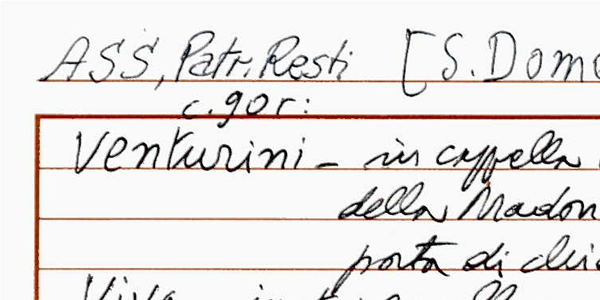 ASS, Patr. Resti [S. Dome
c. 90 r:
Venturini - in cappella
della Madon
porta di chie
Viva in